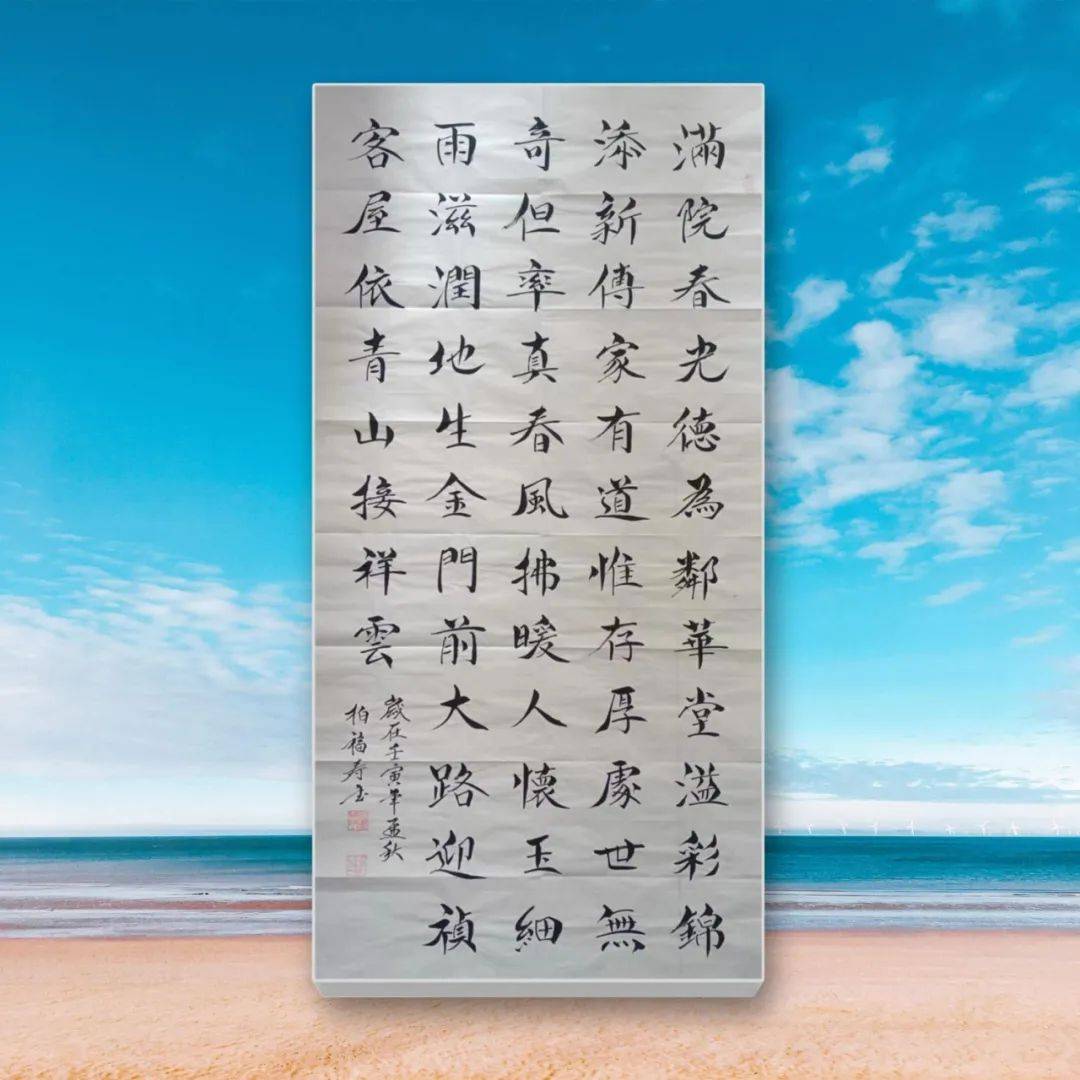 滿院春光德為鄰華堂溢彩錦
添新傳家有道惟存厚處世無
奇但率真春風拂暖人懷玉細
雨滋潤地生金門前大路迎禎
客屋依青山接祥雲
歲在壬寅年孟秋
柏福壽書